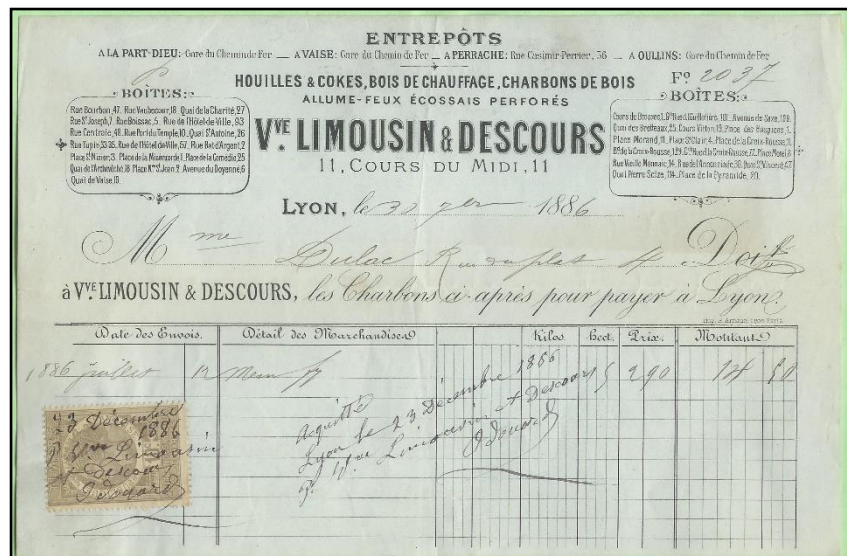 ENTREPÔTS
A LA PART-DIEU: Gare du Chemin de Fer — A VAISE: Gare du Chemin de Fer — A PERRACHE: Rue Casimir-Perrier, 36 — A OULLINS: Gare du Chemin de Fer
HOUILLES & COKES, BOIS DE CHAUFFAGE, CHARBONS DE BOIS
ALLUME-FEUX ÉCOSSAIS PERFORÉS
VVE. LIMOUSIN & DESCOURS
11, COURS DU MIDI, 11
BOÎTES:
Rue Bourbon, 47. Rue Vaubecour, 18. Quai de la Charité, 27
Rue St Joseph, 7. Rue Boissac, 5. Rue de l'Hôtel-de-Ville, 93
Rue Centrale, 48. Rue Port du Temple, 10. Quai St Antoine, 26
Rue de l'Hôtel-de-Ville, 57. Rue Bat d'Argent, 2
Place St Nizier, 3. Place de la Comédie, 25
Quai de l'Archevêché, 18 Place Nve St Jean, 2 Avenue du Doyenné, 6
Quai de Vaise, 15
Fo 2037
BOÎTES:
Cours de Brosses, 1. Gde Rue de la Guillotière, 101. Avenue de Saxe, 109
Quai des Brotteaux, 25. Cours Vitton, 13. Place des Squares, 1
Place Morand, 11. Place St Clair, 4. Place de la Croix-Rousse
Bd de la Croix-Rousse, 129. Gde Rue de la Croix-Rousse, 77. Place Morel, 8
Rue Vieille Monnaie, 14. Rue de l'Annonciade, 30. Quai St Vincent, 67
Quai Pierre Scize, 114. Place de la Pyramide, 20.
LYON, le 31 1886
Mme Dulac Rue du plat 4 Doit
à VVE. LIMOUSIN & DESCOURS, les Charbons ci-après pour payer à Lyon:
Date des Envois. Détail des Marchandises Kilos Hect. Prix. Montant
1886 juillet 12 5 290 14 50
Acquitté
Lyon le 23 Décembre 1886
P. Vve Limousin & Descours
Edouard
23 Décembre
1886
P. Vve Limousin
& Descours
Edouard